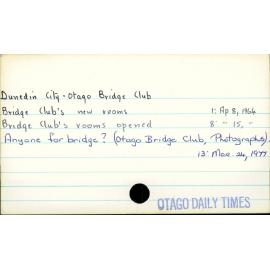 Dunedin City - Otago Bridge Club
Bridge Club's new rooms 1: Ap. 8, 1964
Bridge Club's rooms opened 8: " 15, "
Anyone for bridge? (Otago Bridge Club, Photographs).
13: Mar. 24, 1977
OTAGO DAILY TIMES